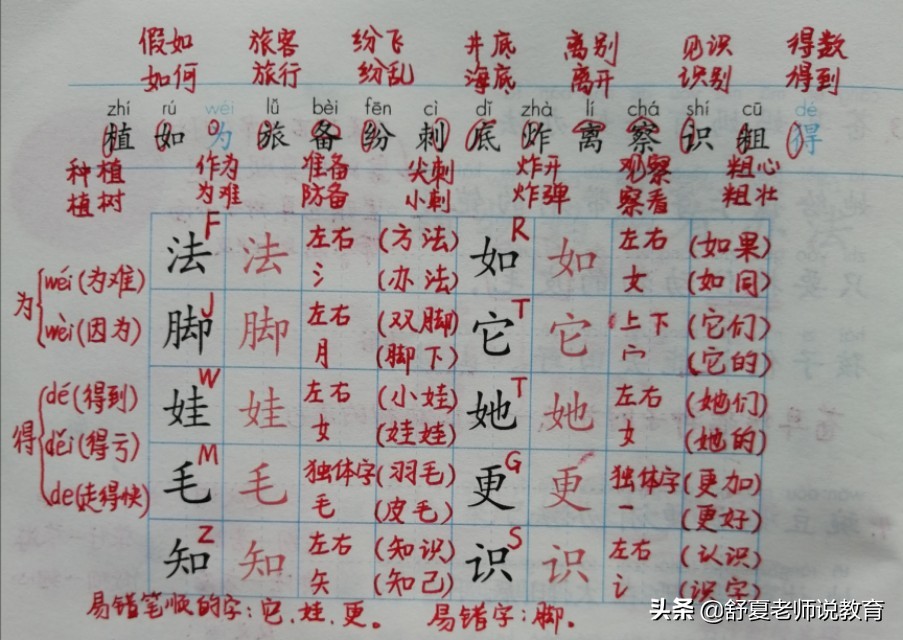 假如 旅客 纷飞 井底 离别 见识 得数
如何 旅行 纷乱 海底 离开 识别 得到
zhí rú wéi lǚ bèi fēn cì dǐ zhà lí chá shí cū dé
植 如 为 旅 备 纷 刺 底 炸 离 察 识 粗 得
种植 作为 准备 尖刺 炸开 观察 粗心
植树 为难 防备 小刺 炸弹 察看 粗壮
法 F 法 左右 氵 (方法) (办法) 如 R 如 左右 女 (如果) (如同)
为 wéi (为难) wèi (因为)
脚 J 脚 左右 月 (双脚) (脚下) 它 T 它 上下 宀 (它们) (它的)
得 dé (得到) děi (得亏) de (走得快)
娃 W 娃 左右 女 (小娃) (娃娃) 她 T 她 左右 女 (她们) (她的)
毛 M 毛 独体字 毛 (羽毛) (皮毛) 更 G 更 独体字 一 (更加) (更好)
知 Z 知 左右 矢 (知识) (知己) 识 S 识 左右 讠 (认识) (识字)
易错笔顺的字:它、娃、更。 易错字:脚。
头条 @舒夏老师说教育